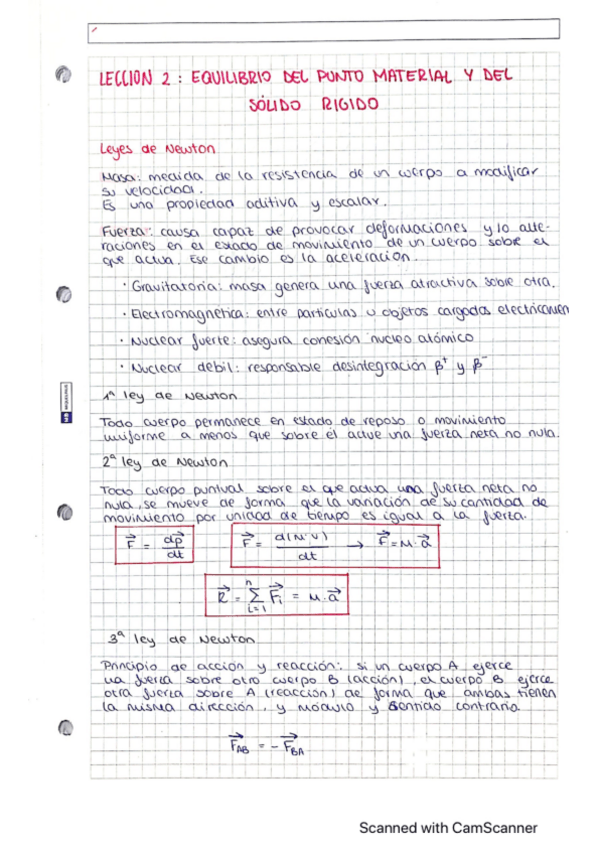 LECCION 2 : EQUILIBRIO DEL PUNTO MATERIAL Y DEL
SÓLIDO RIGIDO
Leyes de Newton
Masa: medida de la resistencia de un cuerpo a modificar
su velocidad.
Es una propiedad aditiva y escalar.
Fuerza: causa capaz de provocar deformaciones y/o alte-
raciones en el estado de movimiento de un cuerpo sobre el
que actua. Ese cambio es la aceleracion.
· Gravitatoria: masa genera una fuerza atractiva sobre otra.
· Electromagnetica: entre particulas u objetos cargados electricamen
· Nuclear fuerte: asegura conexión nucleo atómico
· Nuclear debil: responsable desintegracion β⁺ y β⁻
1ª ley de Newton
Todo cuerpo permanece en estado de reposo o movimiento
uniforme a menos que sobre él actue una fuerza neta no nula.
2ª ley de Newton
Todo cuerpo puntual sobre el que actua una fuerza neta no
nula, se mueve de forma que la variación de su cantidad de
movimiento por unidad de tiempo es igual a la fuerza.
F⃗ = dp⃗/dt   F⃗ = d(M·v)/dt → F⃗ = M·a⃗
R⃗ = Σⁿᵢ₌₁ F⃗i = M·a⃗
3ª ley de Newton
Principio de acción y reacción: si un cuerpo A ejerce
una fuerza sobre otro cuerpo B (acción), el cuerpo B ejerce
otra fuerza sobre A (reacción) de forma que ambas tienen
la misma dirección, y módulo y sentido contrario
F⃗AB = - F⃗BA
Scanned with CamScanner